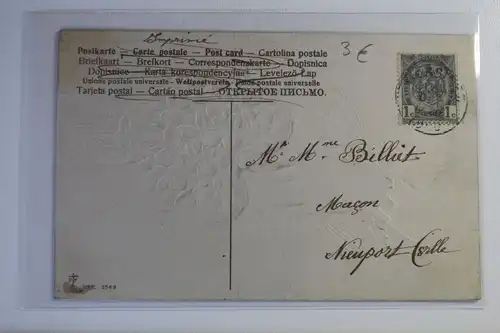 Imprimé
3€
Postkarte — Carte postale — Post card — Cartolina postale
Briefkaart — Brefkort — Correspondenzkarte — Dopisnica
Dopisnice — Karta korespondencyjna — Levelező-Lap
Unione postale universale — Weltpostverein — Union postale universelle
Tarjeta postal — Cartão postal — ОТКРЫТОЕ ПИСЬМО.
1c 1c
Mr. Mme Billiet
Maçon
Nieuport Ville